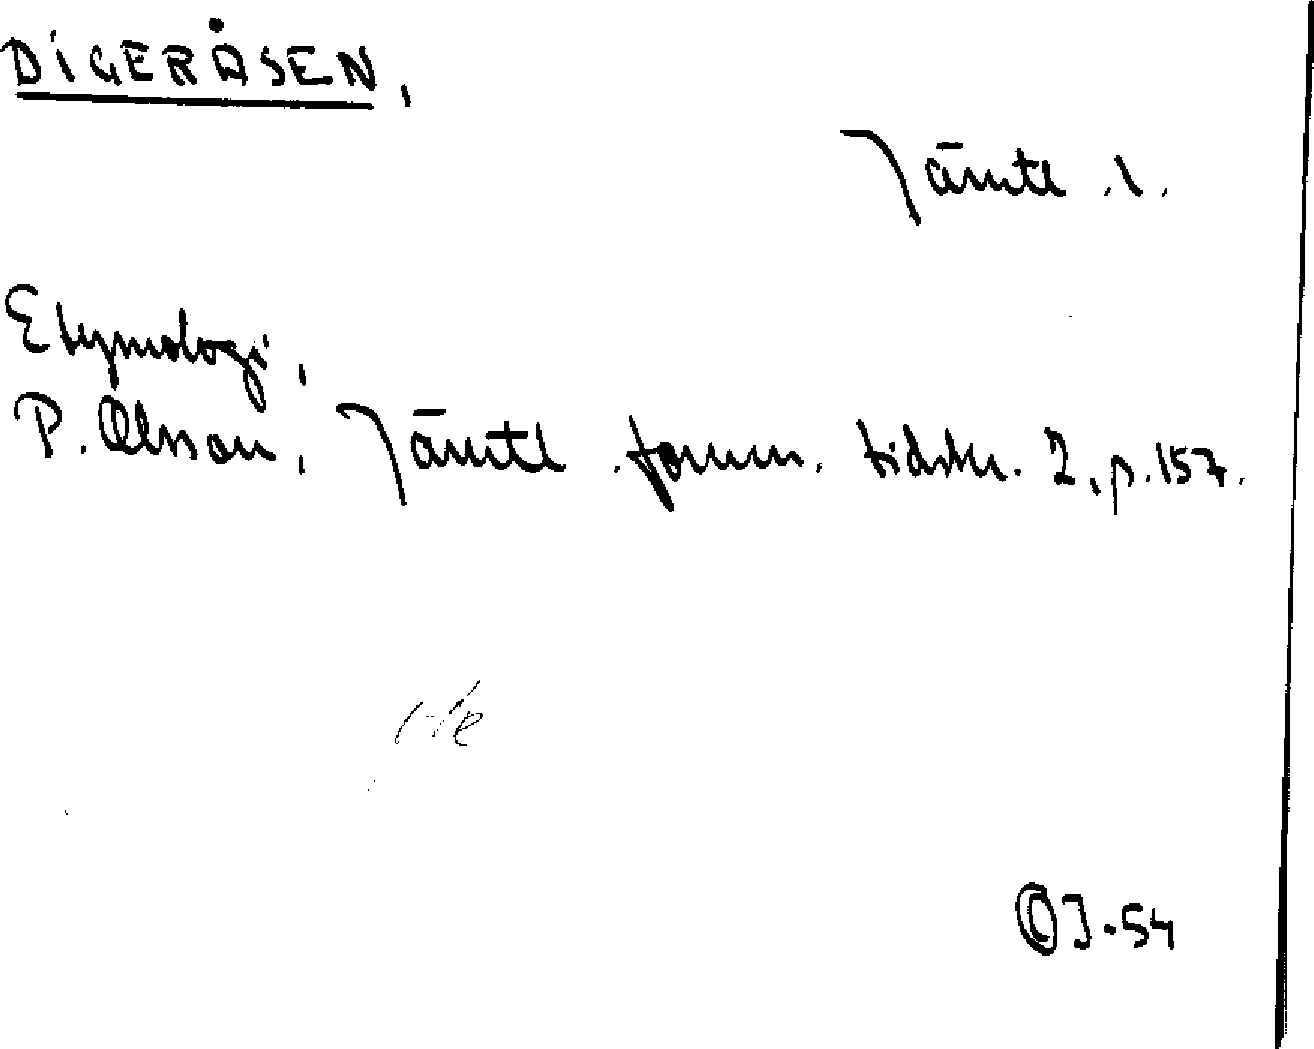 DIGERÅSEN,
Jämtl.
Etymologi,
P. Olsson, Jämtl. fornm. tidskr. 2, p. 157.
J-54